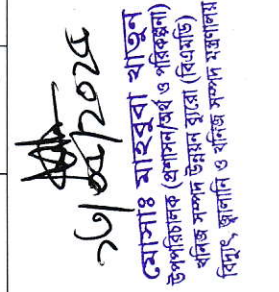 মোসাঃ মাহবুবা খাতুন
উপপরিচালক (প্রশাসন/অর্থ ও পরিকল্পনা)
খনিজ সম্পদ উন্নয়ন ব্যুরো (বিএমডি)
বিদ্যুৎ, জ্বালানি ও খনিজ সম্পদ মন্ত্রণালয়